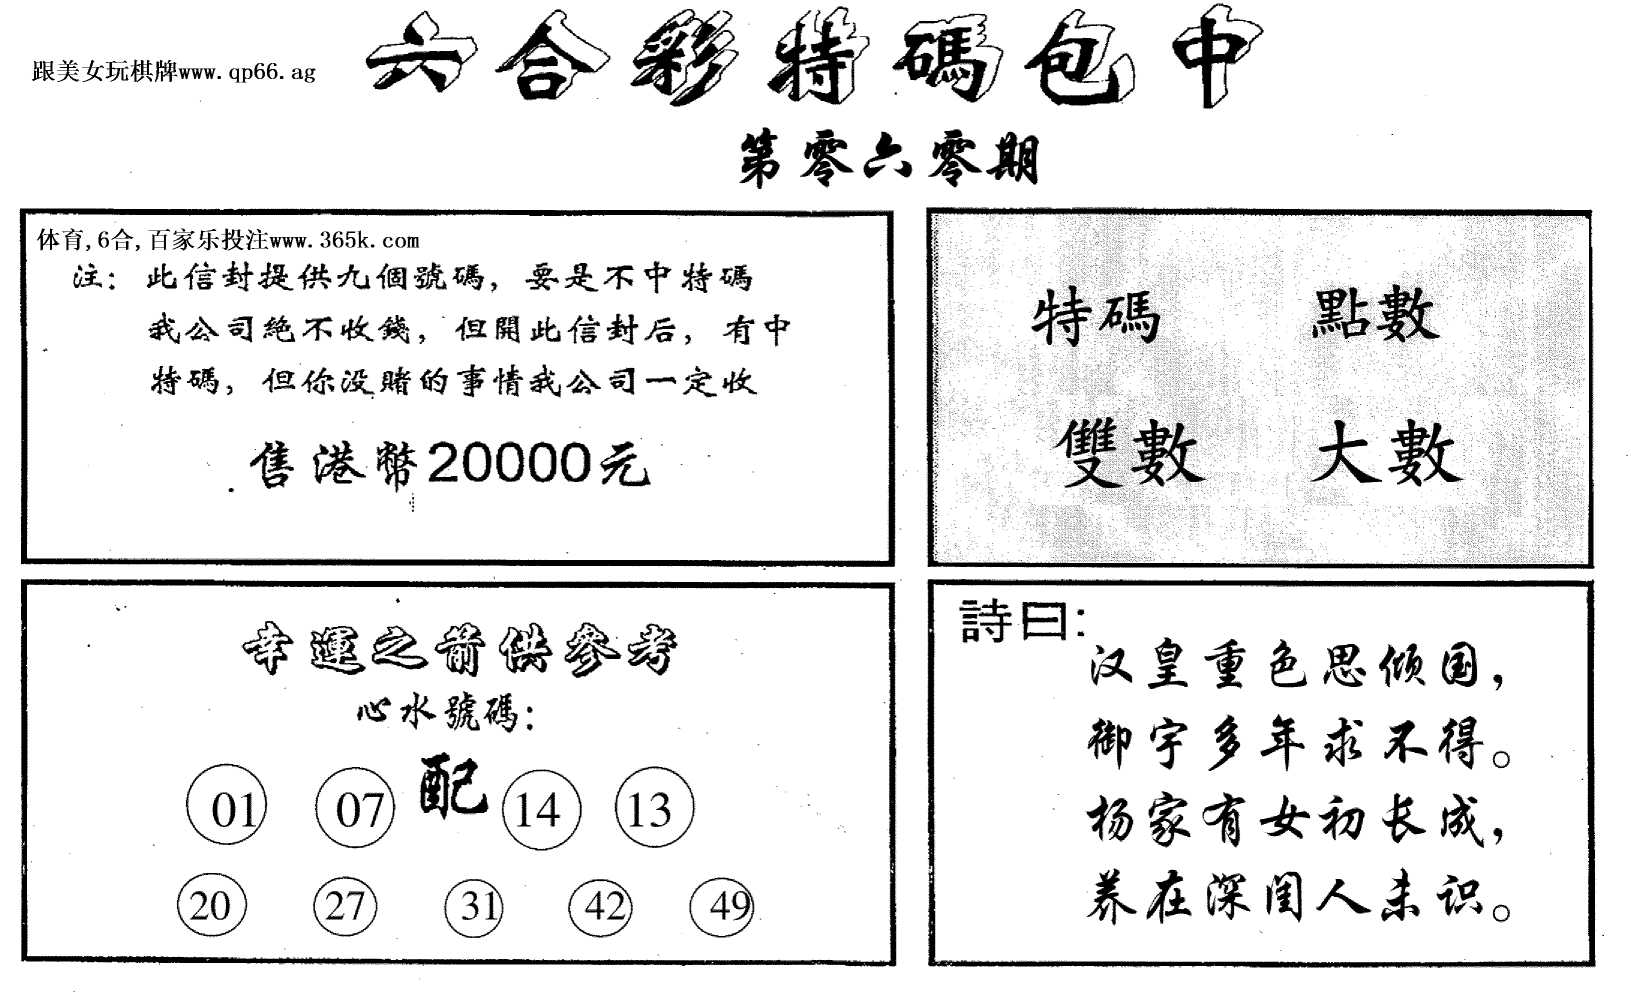 六合彩特碼包中
跟美女玩棋牌www.qp66.ag
第零六零期
体育,6合,百家乐投注www.365k.com
注：此信封提供九個號碼，要是不中特碼
我公司絶不收錢，但開此信封后，有中
特碼，但你没賭的事情我公司一定收
售港幣20000元
特碼 點數
雙數 大數
幸運之箭供參考
心水號碼：
01 07 配 14 13
20 27 31 42 49
詩曰：
汉皇重色思倾国，
御宇多年求不得。
杨家有女初长成，
养在深闺人未识。